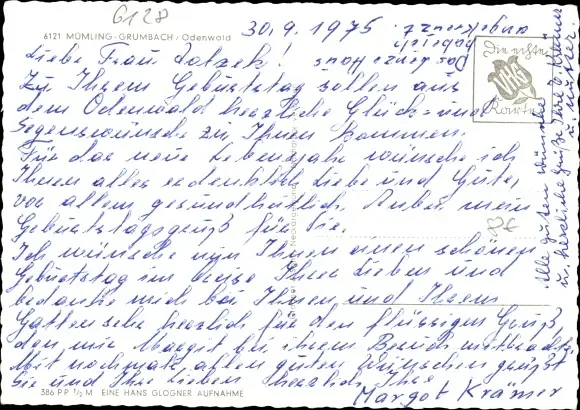 6128
6121 MÜMLING-GRUMBACH / Odenwald
30.9.1975
Liebe Frau
Zu Ihrem Geburtstag sollen aus
dem Odenwald herzliche Glück- und
Segenswünsche zu Ihnen kommen.
Für das neue Lebensjahr wünsche ich
Ihnen alles erdenklich Liebe und Gute,
vor allem gesundheitlich. Anbei mein
Geburtstagsgruß für Sie.
Ich wünsche nun Ihnen einen schönen
Geburtstag im Kreise Ihrer Lieben und
bedanke mich bei Ihnen und Ihrem
Gatten sehr herzlich für den flüssigen Gruß
den mir Margit bei ihrem Besuch mitbrachte.
Mit nochmals allen guten Wünschen grüßt
Sie und Ihre Lieben herzlich Ihre
Margot Krämer
386 PP ½ M EINE HANS GLOGNER AUFNAHME
Das ganze Haus
habe ich
angekreuzt.
Die echte
VHG
Karte
Alle guten Wünsche
u. herzliche Grüße Ihre
u. Mutter.